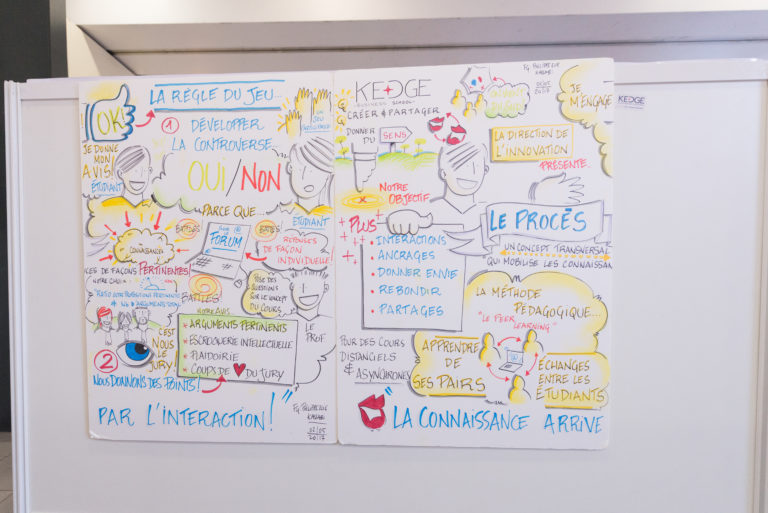 OK!
LA RÉGLE DU JEU...
JE DONNE
MON
AVIS!
ÉTUDIANT
1
DÉVELOPPER
LA CONTROVERSE
OUI/NON
PARCE QUE...
ÉTUDIANT
CONNAISSANCES
BATTLES
FORUM
BATTLES
RÉPONSES
DE FAÇON
INDIVIDUELLE
DE FAÇONS PERTINENTES
NOTRE CHOIX
BATTLES
POSE DES
QUESTIONS
SUR LE CONCEPT
DU COURS
LE
PROF
C'EST
NOUS
LE
JURY!
2
NOUS DONNONS DES POINTS!
ARGUMENTS PERTINENTS
ESCROQUERIE INTELLECTUELLE
PLAIDOIRIE
COUPS DE DU JURY
PAR L'INTERACTION!
02/05
2017
KEDGE
BUSINESS SCHOOL
CRÉER & PARTAGER
DONNER
DU
SENS
NOTRE
OBJECTIF
+ PLUS
INTERACTIONS
ANCRAGES
DONNER ENVIE
REBONDIR
PARTAGES
POUR DES COURS
DISTANCIELS
& ASYNCHRONES
JE
M'ENGAGE
LA DIRECTION DE
L'INNOVATION
PRÉSENTE...
LE PROCÈS
UN CONCEPT TRANSVERSAL
QUI MOBILISE LES CONNAISSAN
LA MÉTHODE
PÉDAGOGIQUE...
"LE PEER
LEARNING"
APPRENDRE
DE
SES PAIRS
ÉCHANGES
ENTRE LES
ÉTUDIANTS
LA CONNAISSANCE ARRIVE
KEDGE